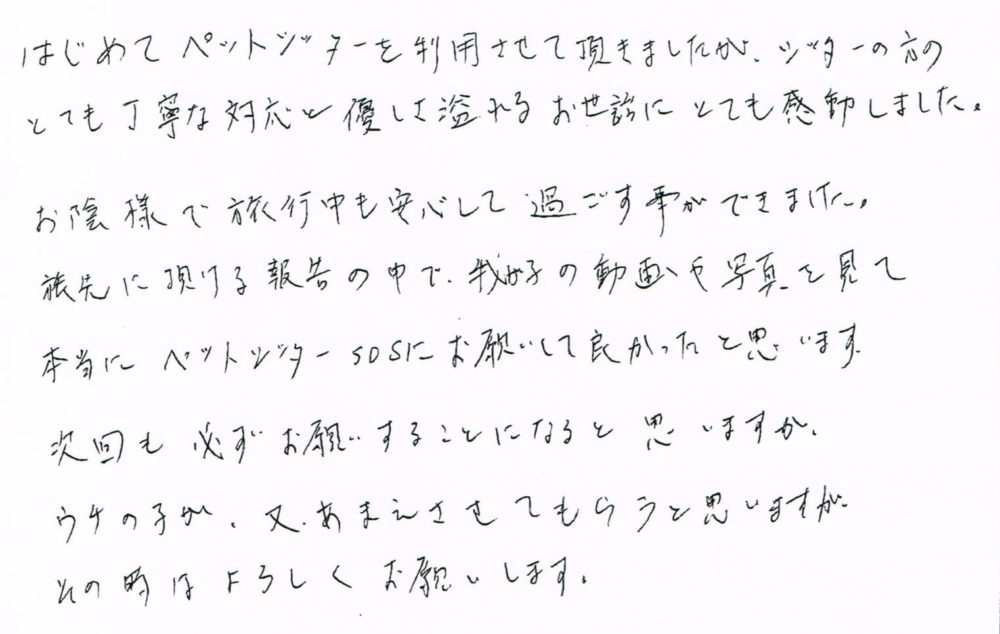 はじめてペットシッターを利用させて頂きましたが、シッターの方の
とても丁寧な対応と優しさ溢れるお世話にとても感動しました。
お陰様で旅行中も安心して過ごす事ができました。
旅先に頂ける報告の中で、我が子の動画や写真を見て
本当にペットシッターSOSにお願いして良かったと思います
次回も必ずお願いすることになると思いますが、
ウチの子が、又、あまえさせてもらうと思いますが、
その時はよろしくお願いします。